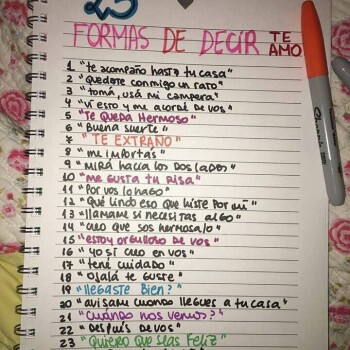 25
FORMAS DE DECIR TE AMO
1 "te acompaño hasta tu casa"
2 "Quedate conmigo un rato"
3 "tomá, usá mi campera"
4 "Ví esto y me acordé de vos"
5 "Te queda hermoso"
6 "Buena suerte"
7 "TE EXTRAÑO"
8 "me importas"
9 "mirá hacia los dos lados"
10 "me gusta tu risa"
11 "Por vos lo hago"
12 "Qué lindo eso que histe por mi"
13 "llamame si necesitas algo"
14 "creo que sos hermosa/o"
15 "estoy orgulloso de vos"
16 "yo sí creo en vos"
17 "tené cuidado"
18 "ojalá te guste"
19 "llegaste bien?"
20 "avisame cuando llegues a tu casa"
21 "cuando nos vemos?"
22 "después de vos"
23 "Quiero que seas feliz"
Sharpie